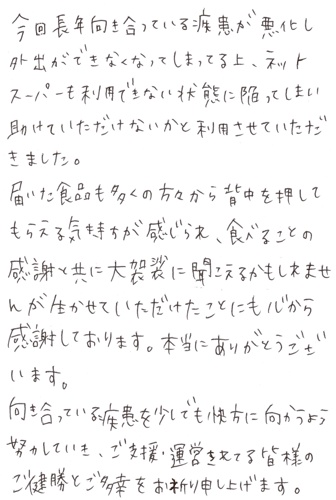 今回長年向き合っている疾患が悪化し
外出ができなくなってしまってる上、ネット
スーパーも利用できない状態に陥ってしまい
助けていただけないかと利用させていただ
きました。
届いた食品も多くの方々から背中を押して
もらえる気持ちが感じられ、食べることの
感謝と共に大袈裟に聞こえるかもしれませ
んが生かせていただけたことにも心から
感謝しております。本当にありがとうござ
います。
向き合っている疾患を少しでも快方に向かうよう
努力していき、ご支援・運営されてる皆様の
ご健勝とご多幸をお祈り申し上げます。